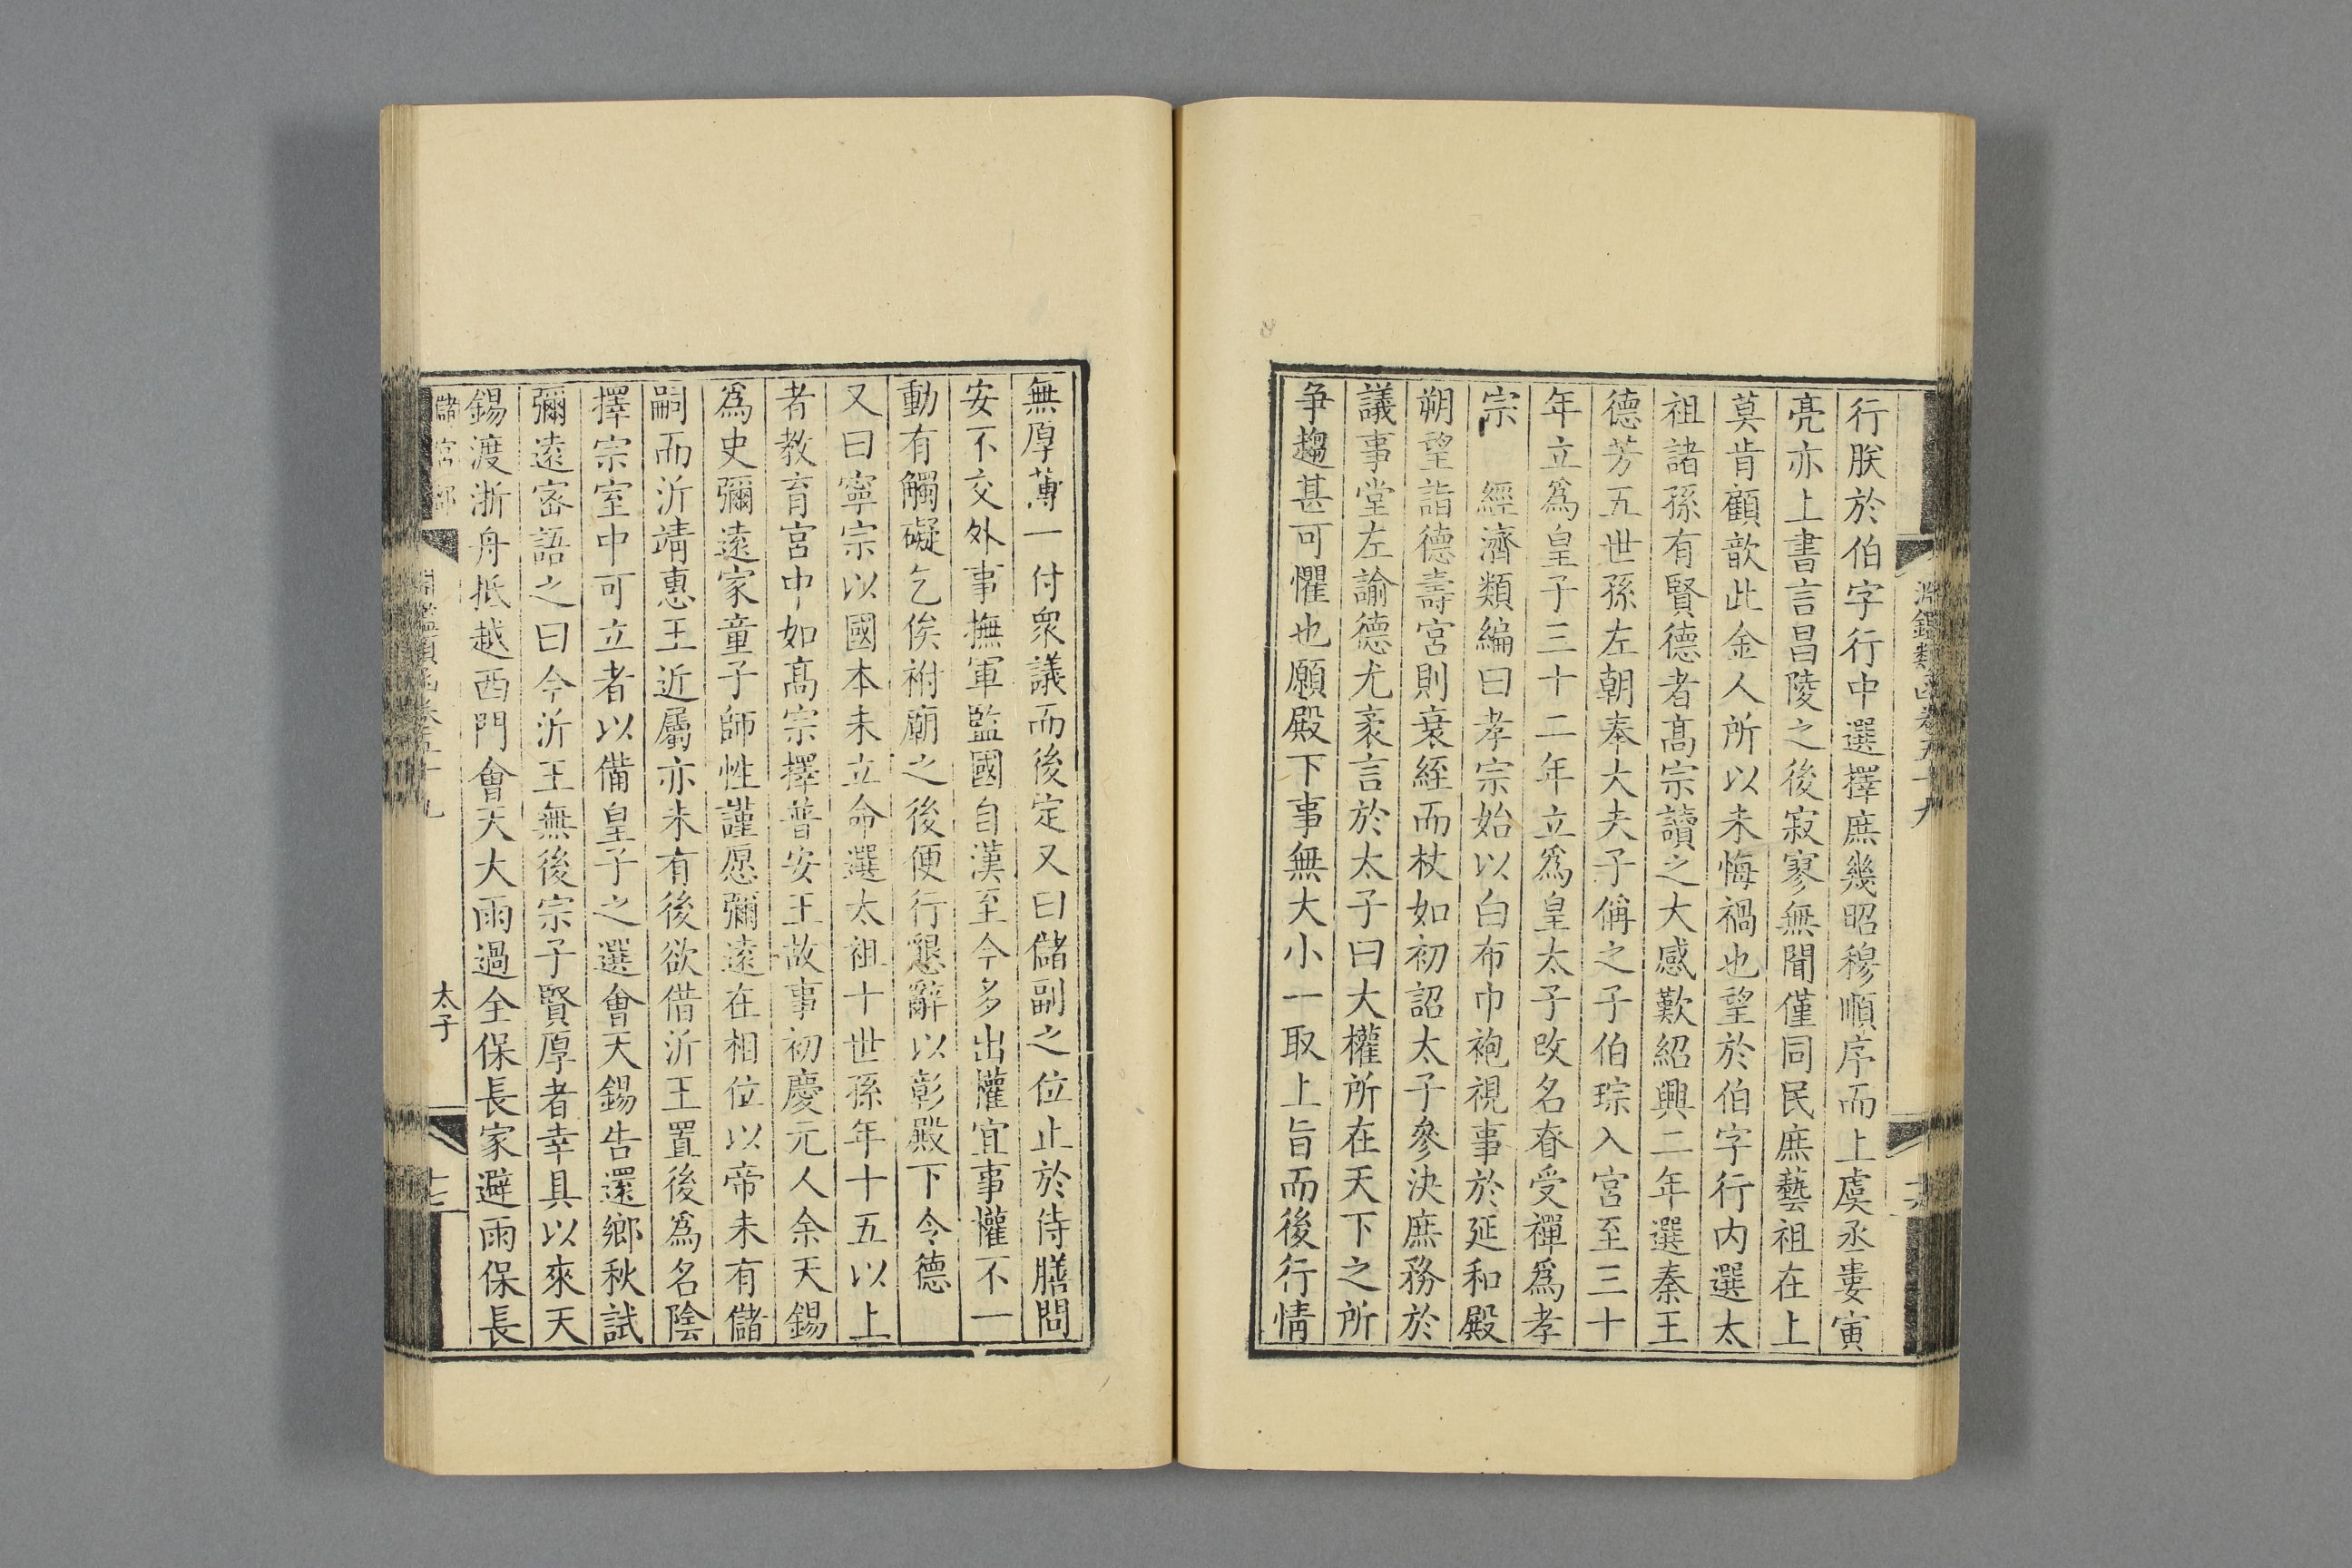 淵鑑類函卷五十九
行朕於伯字行中選擇庶幾昭穆順序而上虞丞婁寅
亮亦上書言昌陵之後寂寥無聞僅同民庶藝祖在上
莫肯顧歆此金人所以未悔禍也望於伯字行内選太
祖諸孫有賢德者高宗讀之大感歎紹興二年選秦王
德芳五世孫左朝奉大夫子偁之子伯琮入宮至三十
年立爲皇子三十二年立爲皇太子改名眘受禪爲孝
宗　經濟類編曰孝宗始以白布巾袍視事於延和殿
朔望詣德壽宮則衰絰而杖如初詔太子參決庶務於
議事堂左諭德尤袤言於太子曰大權所在天下之所
爭趨甚可懼也願殿下事無大小一取上旨而後行情
無厚薄一付衆議而後定又曰儲副之位止於侍膳問
安不交外事撫軍監國自漢至今多出權宜事權不一
動有觸礙乞俟祔廟之後便行懇辭以彰殿下令德
又曰寧宗以國本未立命選太祖十世孫年十五以上
者教育宮中如高宗擇普安王故事初慶元人余天錫
爲史彌遠家童子師性謹愿彌遠在相位以帝未有儲
嗣而沂靖惠王近屬亦未有後欲借沂王置後爲名陰
擇宗室中可立者以備皇子之選會天錫告還鄉秋試
彌遠密語之曰今沂王無後宗子賢厚者幸具以來天
錫渡浙舟抵越西門會天大雨過全保長家避雨保長
儲宮部
淵鑑類函卷五十九
太子
十七